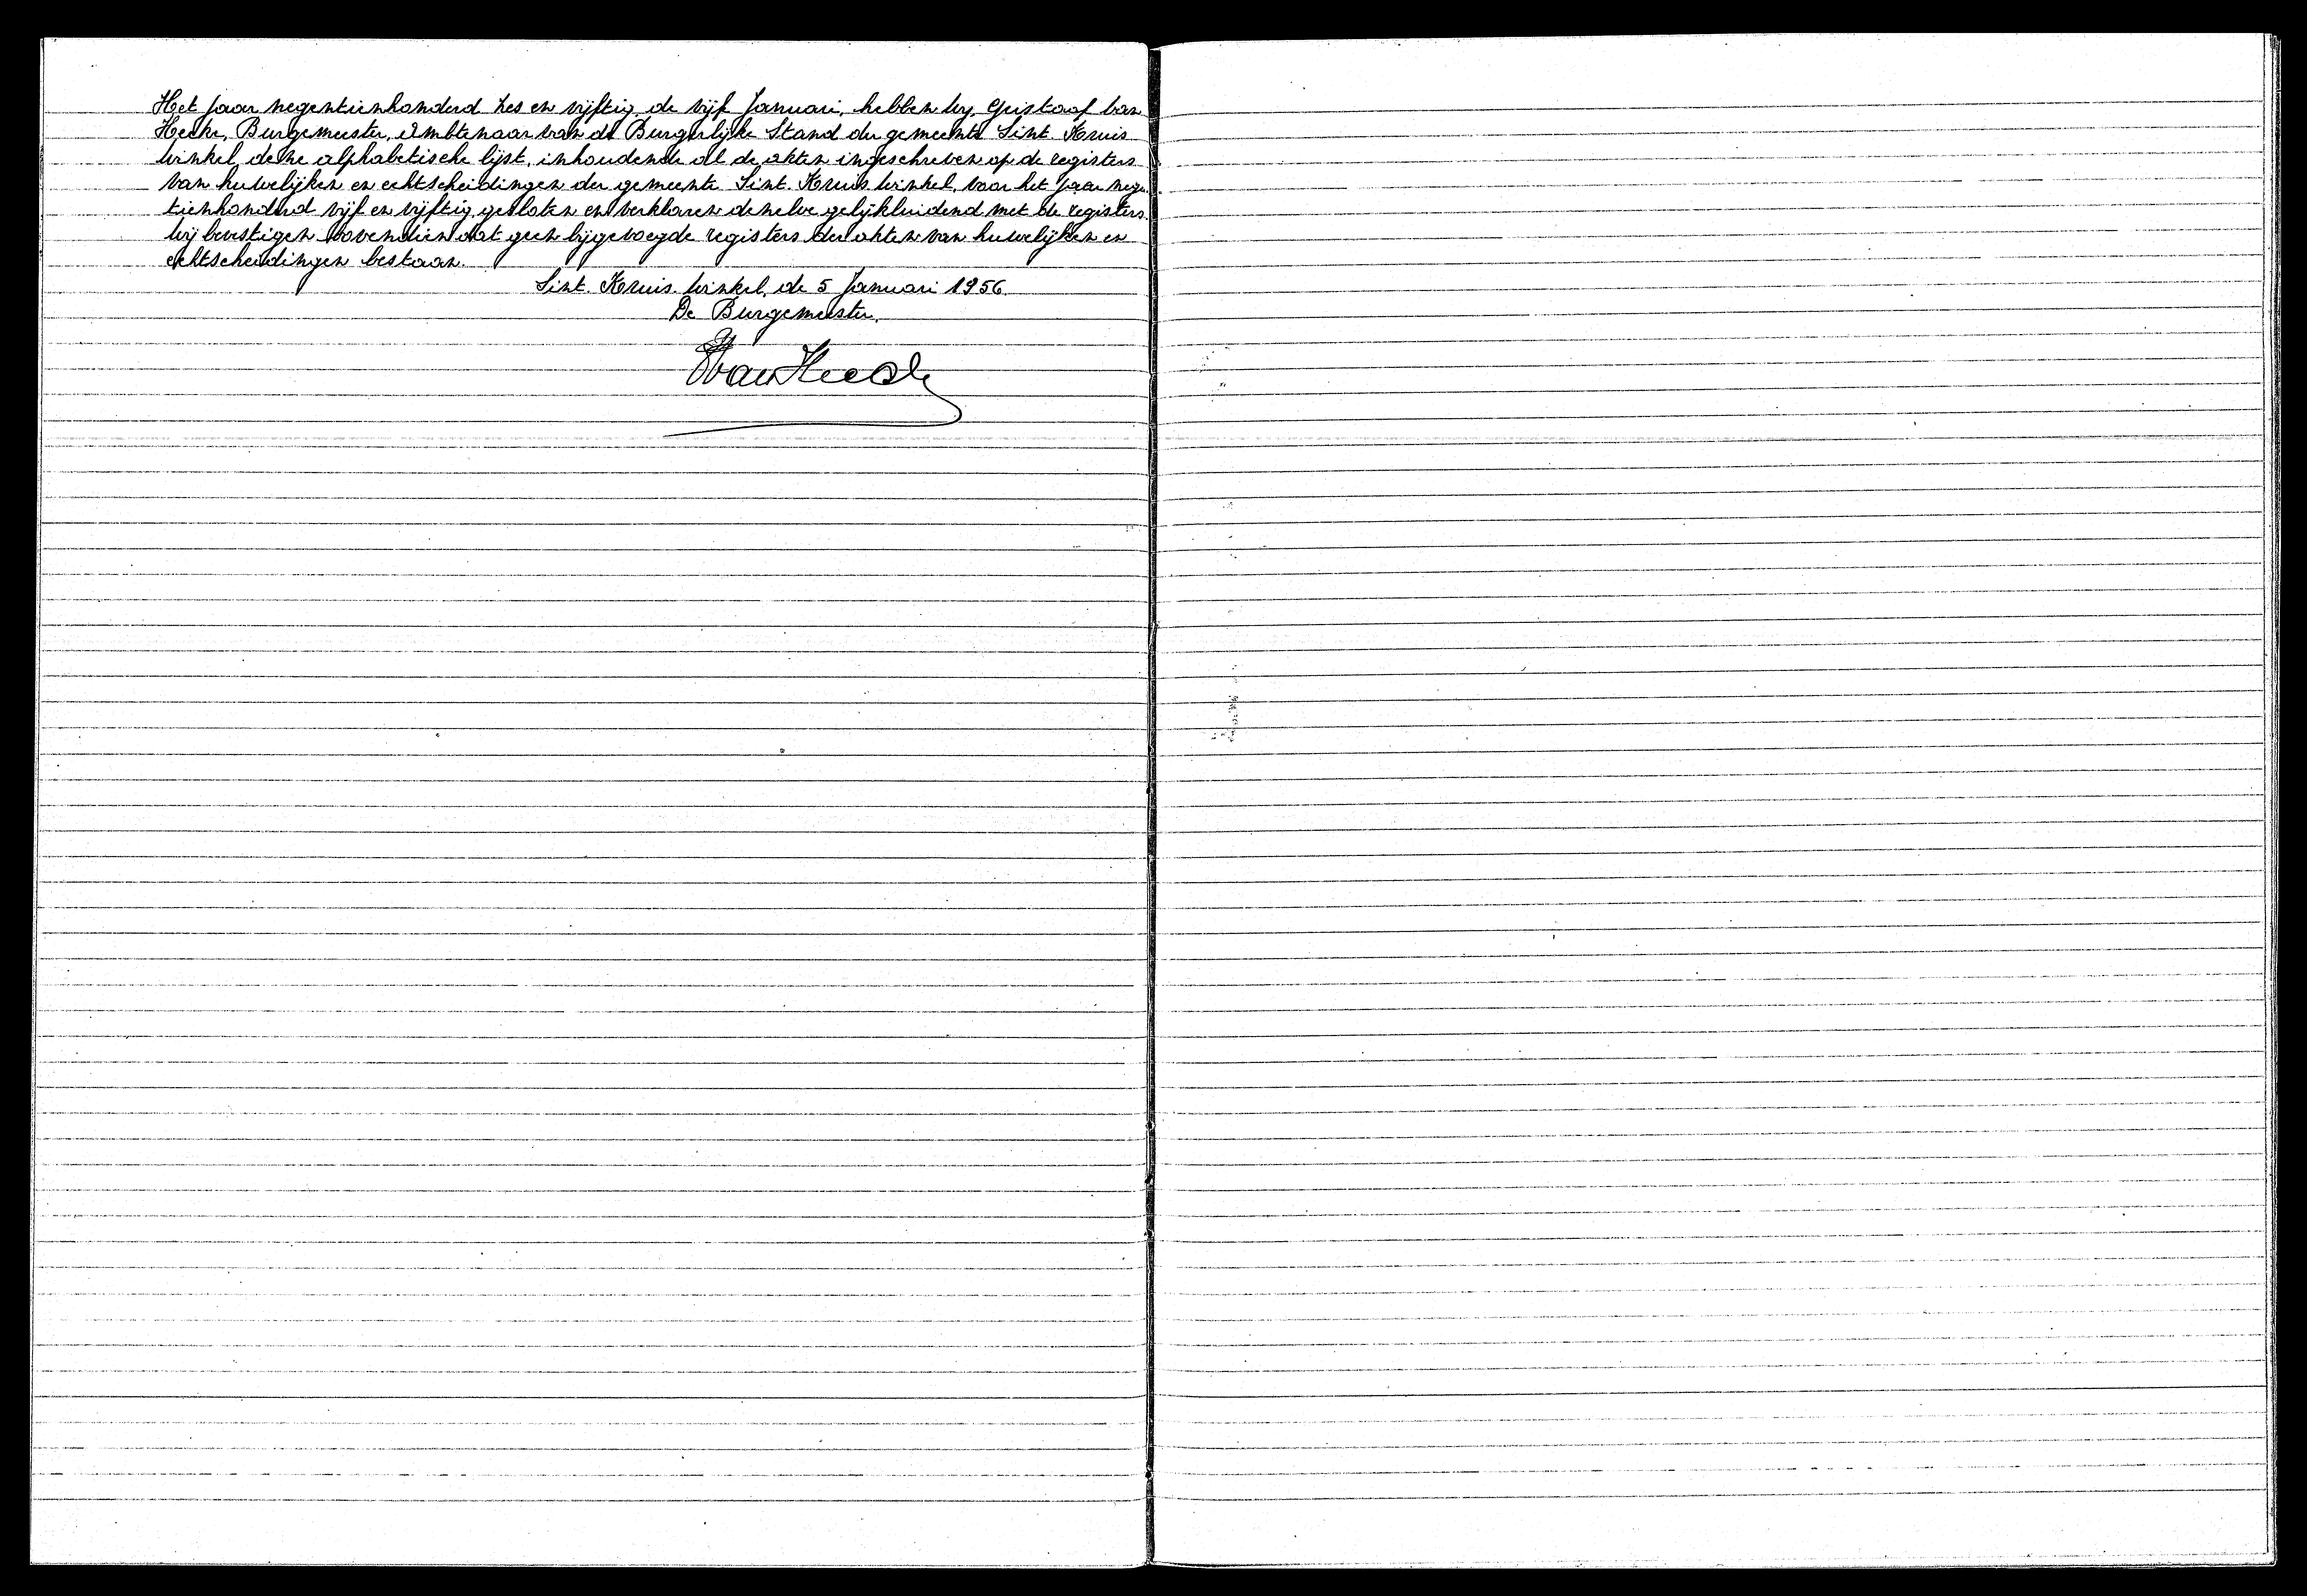 Het jaar negentienhonderd zes en vijftig, de vijf Januari, hebben wij, Gustaaf Van
Hecke, Burgemeester, Ambtenaar van de Burgerlijke Stand der gemeente Sint. Kruis.
Winkel, deze alphabetische lijst, inhoudende al de akten ingeschreven op de registers
van huwelijken en echtscheidingen der gemeente Sint. Kruis. Winkel, voor het jaar nege
tienhonderd vijf en vijftig, gesloten en verklaren dezelve gelijkluidend met de registers.
Wij bevestigen bovendien dat geen bijgevoegde registers der akten van huwelijken en
echtscheidingen bestaan.
Sint. Kruis. Winkel, de 5 Januari 1956.
De Burgemeester,
GVanHecke